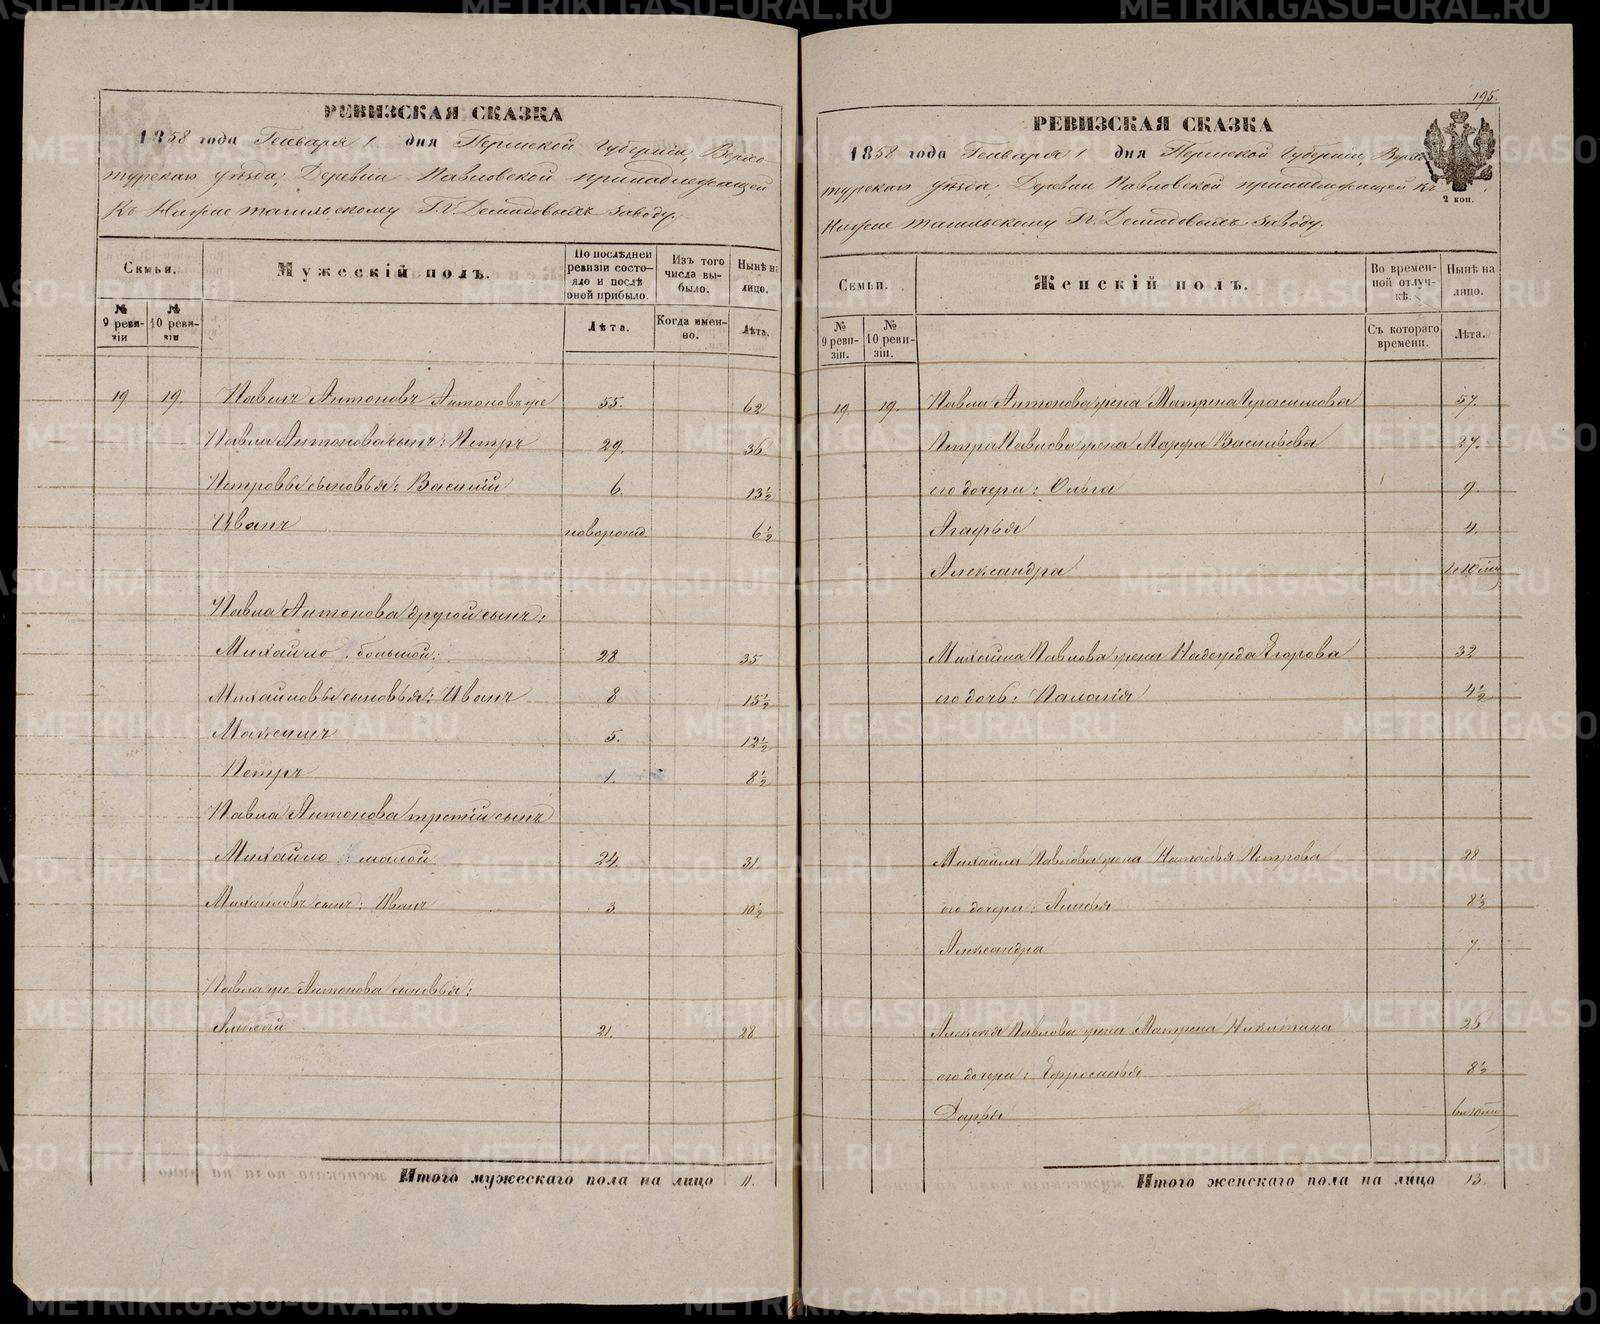 РЕВИЗСКАЯ СКАЗКА
1858 года Генваря 1 дня Пермской Губернии, Верхо-
турскаго уѣзда, Деревни Павловской принадлежащей
къ Нижне тагильскому Г.г. Демидовыхъ заводу.
Семьи.
№ 9 реви-зіи
№ 10 реви-зіи
Мужескій полъ.
По послѣдней ревизіи состо-яло и послѣ оной прибыло.
Лѣта.
Изъ того числа вы-было.
Когда имен-но.
Нынѣ на лицо.
Лѣта.
19 19. Павелъ Антоновъ Антоновъ же 55. 62
Павла Антонова сынъ: Петръ 29. 36
Петровы сыновья: Василій 6. 13½
Иванъ новорожд 6½
Павла Антонова другой сынъ:
Михайло большой: 28 35
Михайловы сыновья: Иванъ 8 15½
Максимъ 5. 12½
Петръ 1. 8½
Павла Антонова третій сынъ
Михайло: малой 24. 31.
Михайловъ сынъ: Иванъ 3. 10½
Павла же Антонова сыновья:
Алексѣй 21. 28
Итого мужескаго пола на лицо 11.
195.
РЕВИЗСКАЯ СКАЗКА
1858 года Генваря 1 дня Пермской Губерніи, Верхо-
турскаго уѣзда, Деревни Павловской принадлежащей къ
Нижне тагильскому Г.г. Демидовыхъ заводу.
2 коп.
Семьи.
№ 9 реви-зіи.
№ 10 реви-зіи.
Женскій полъ.
Во времен-ной отлуч-кѣ.
Съ котораго времени.
Нынѣ на лицо.
Лѣта.
19 19. Павла Антонова жена Матрена Герасимова 57.
Петра Павлова жена Марфа Васильева 27.
его дочери: Ольга 9.
Агафья 4.
Александра
Михайла Павлова жена Надежда Егорова 32
его дочь: Палагія 4½
Михайла Павлова жена Наталья Петрова 28
его дочери: Анисья 8½
Александра 7.
Алексѣя Павлова жена Матрена Никитина 26
его дочери: Ефросинья 8½
Дарья
Итого женскаго пола на лицо 13.
METRIKI.GASO-URAL.RU